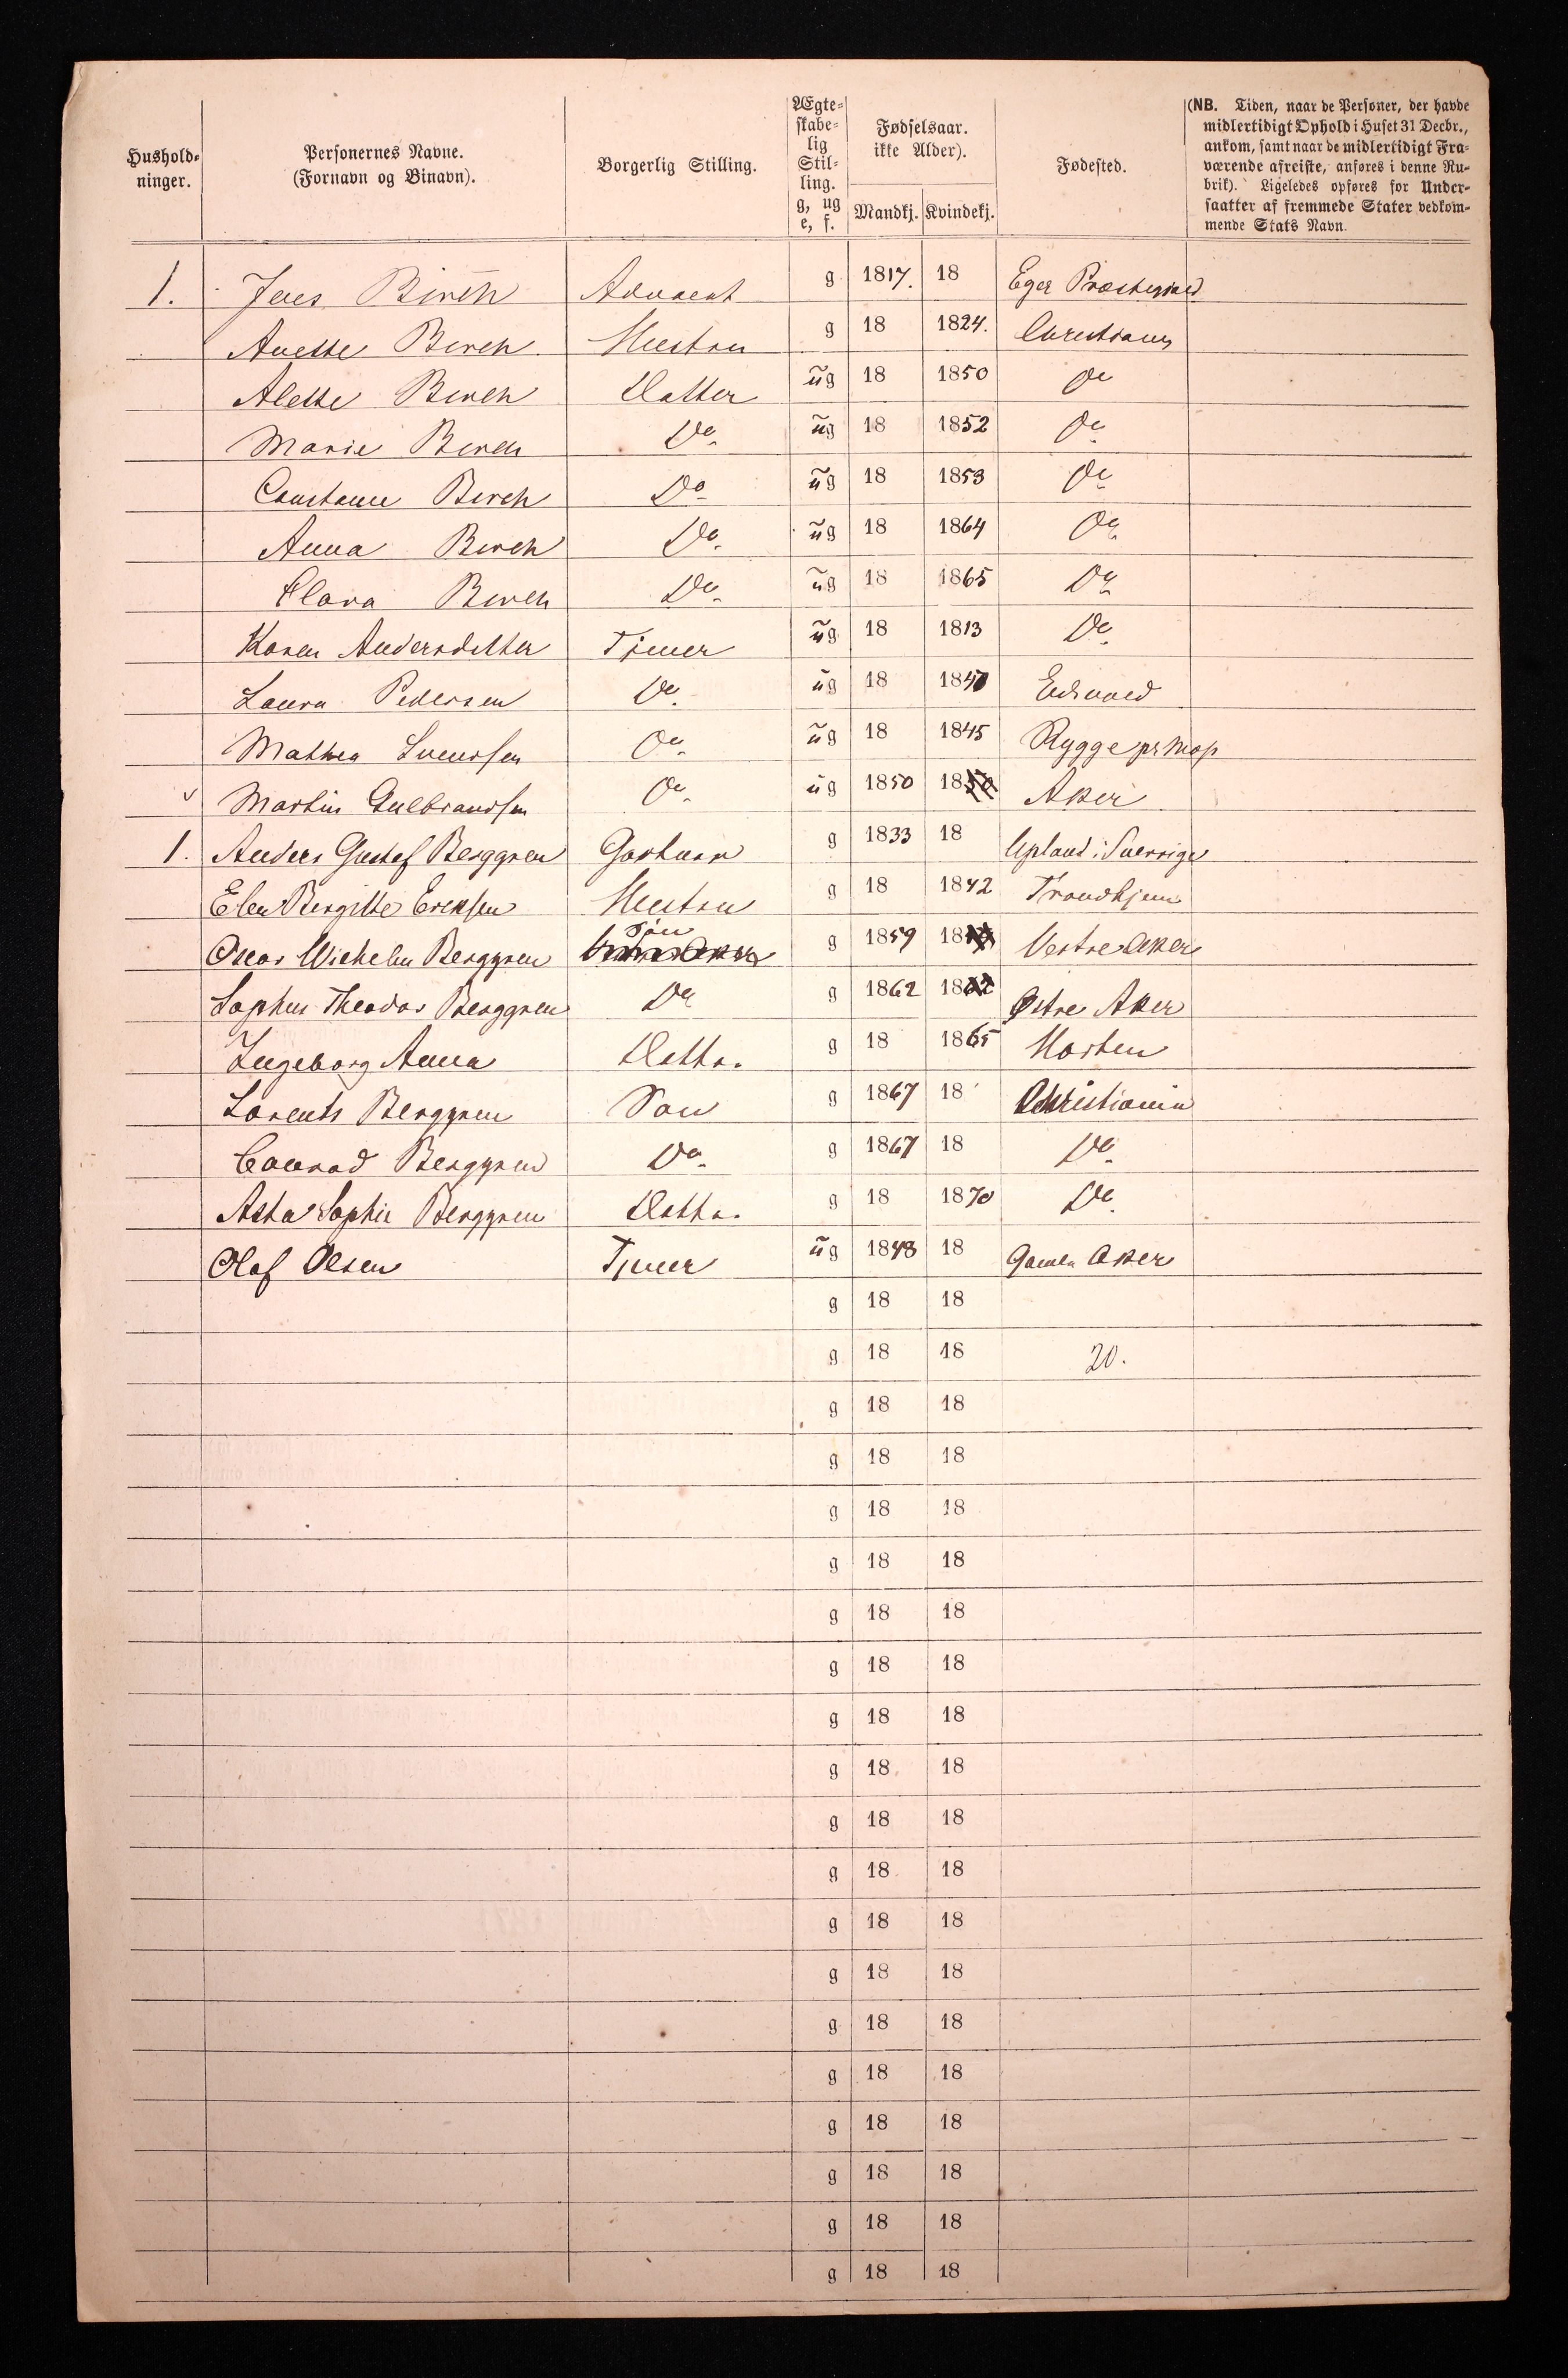 Hushold-
ninger.
Personernes Navne.
(Fornavn og Binavn).
Borgerlig Stilling.
Ægte-
skabe-
lig
Stil-
ling.
g, ug
e, f.
Fødselsaar.
ikke Alder).
Mandkj. Kvindekj.
Fødested.
(NB. Tiden, naar de Personer, der havde
midlertidigt Ophold i Huset 31 Decbr.,
ankom, samt naar de midlertidigt Fra-
værende afreiste, anføres i denne Ru-
brik). Ligeledes opføres for Under-
saatter af fremmede Stater vedkom-
mende Stats Navn.
1. Jens Birch Advocat g 1817. 18 Eger Præstegield
Anette Birch Hustru g 18 1824. Christiania
Alette Birch Datter ug 18 1850 Do
Marie Birch Do ug 18 1852 Do
Constance Birch Do ug 18 1853 Do
Anna Birch Do ug 18 1864 Do
Clara Birch Do ug 18 1865 Do
Karen Andersdatter Tjener ug 18 1813 Do
Laura Pedersen Do ug 18 1840 Eidsvold
Mathea Svendsen Do ug 18 1845 Rygge pr Mos
Martin Gulbrandsen Do ug 1850 18 Aker
1. Anders Gustaf Berggren Gartner g 1833 18 Upland i Sverrige
Elen Bergitte Eriksen Hustru g 18 1842 Trondhjem
Oscar Wilhelm Berggren Søn g 1859 18 Vestre Aker
Sophus Theodor Berggren Do g 1862 18 Østre Aker
Ingeborg Anna Datter g 18 1865 Horten
Lorents Berggren Søn g 1867 18 Christiania
Conrad Berggren Do g 1867 18 Do
Asta Sophie Berggren Datter g 18 1870 Do
Olaf Olsen Tjener ug 1848 18 Gamle Aker
g 18 18
g 18 18 20.
g 18 18
g 18 18
g 18 18
g 18 18
g 18 18
g 18 18
g 18 18
g 18 18
g 18 18
g 18 18
g 18 18
g 18 18
g 18 18
g 18 18
g 18 18
g 18 18
g 18 18
g 18 18